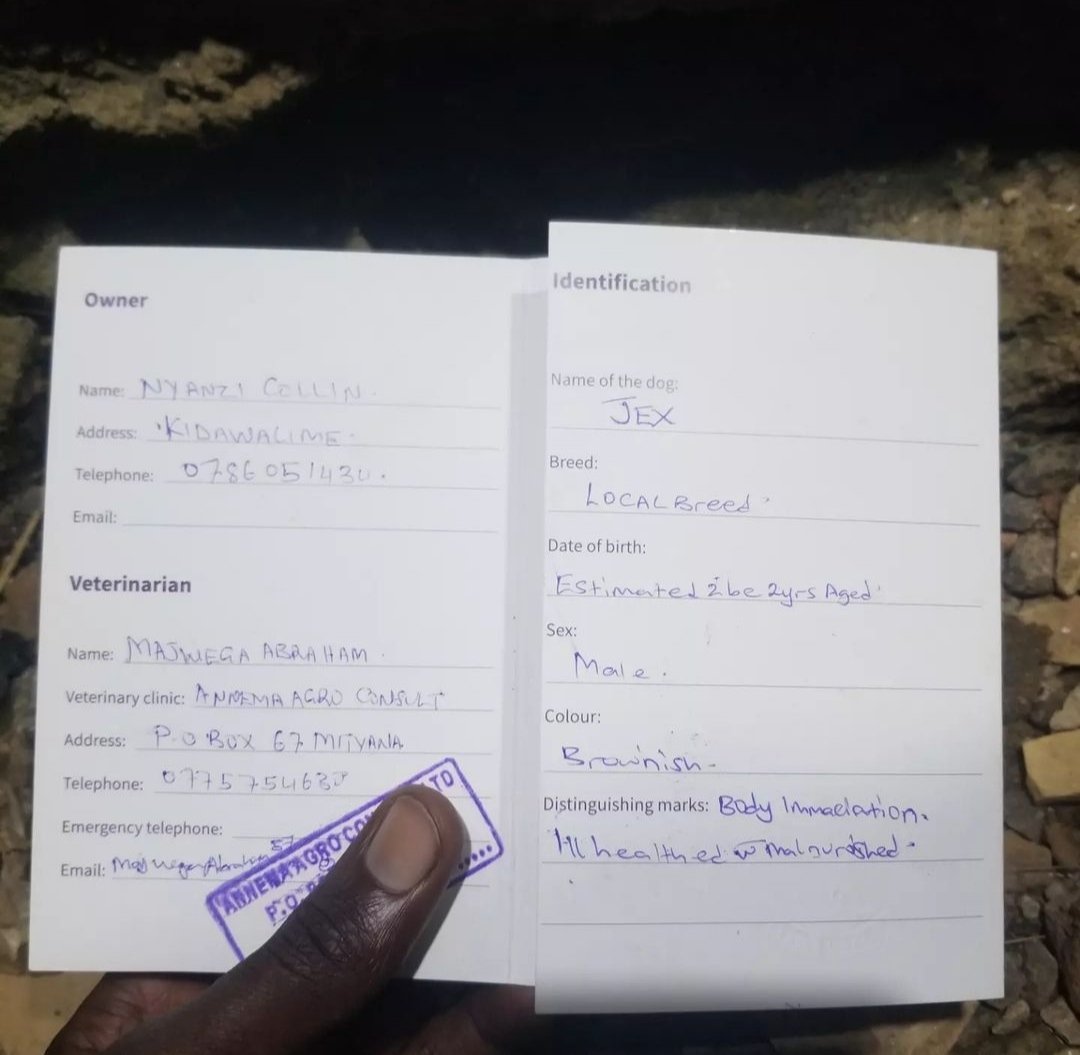 Owner
Name: NYANZI COLLIN.
Address: KIDAWALIME.
Telephone:
Email:
Veterinarian
Name: MAJWEGA ABRAHAM.
Veterinary clinic: ANNEMA AGRO CONSULT
Address: P.O BOX 67 MITYANA
Telephone:
Emergency telephone:
Email:
ANNENA AGRO LTD
P.O.
Identification
Name of the dog:
JEX
Breed:
LOCAL Breed.
Date of birth:
Estimated 2 be 2yrs Aged.
Sex:
Male.
Colour:
Brownish.
Distinguishing marks: Body Immaelation.
Ill healthed malnurished.